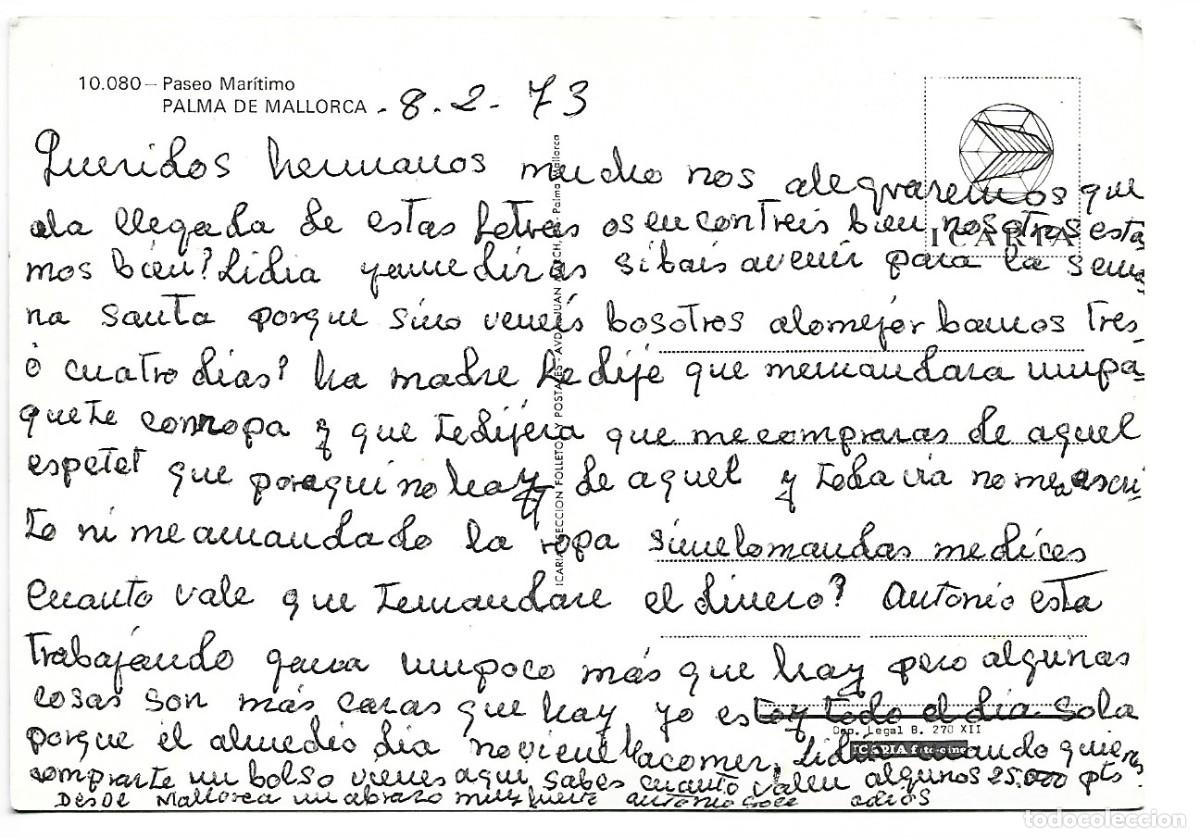 10.080 – Paseo Marítimo
PALMA DE MALLORCA . 8. 2. 73
ICARIA
Queridos hermanos mucho nos alegraremos que
ala llegada de estas letras os encontreis bien nosotros esta
mos bien? Lidia yamedirás sibais avenir para la sema
na santa porque sino veneis bosotros alomejór bamos tres
ó cuatro dias? ha madre le dije que memandara umpa-
quete conropa y que tedijera que mecompraras de aquel
espetet que poraqui no hay de aquel y todavia no me a escri
to ni meamandado la ropa simelomandas medices
cuanto vale que temandare el dinero? Antonio esta
trabajándo gana umpoco más que hay pero algunas
cosas son más caras que hay yo estoy todo el dia sola
porque el almedio dia noviene hacomer, Lidia cuando quieras
comprarte un bolso vienes aqui sabes cuanto valen algunos 25.000 pts.
Desde Mallorca un abrazo muy fuerte Antonio adios
Dep. Legal B. 270 XII
ICARIA foto-cine
ICARIA SECCION FOLLETOS Y POSTALES AVDA. JUAN MARCH, Palma Mallorca
todocoleccion